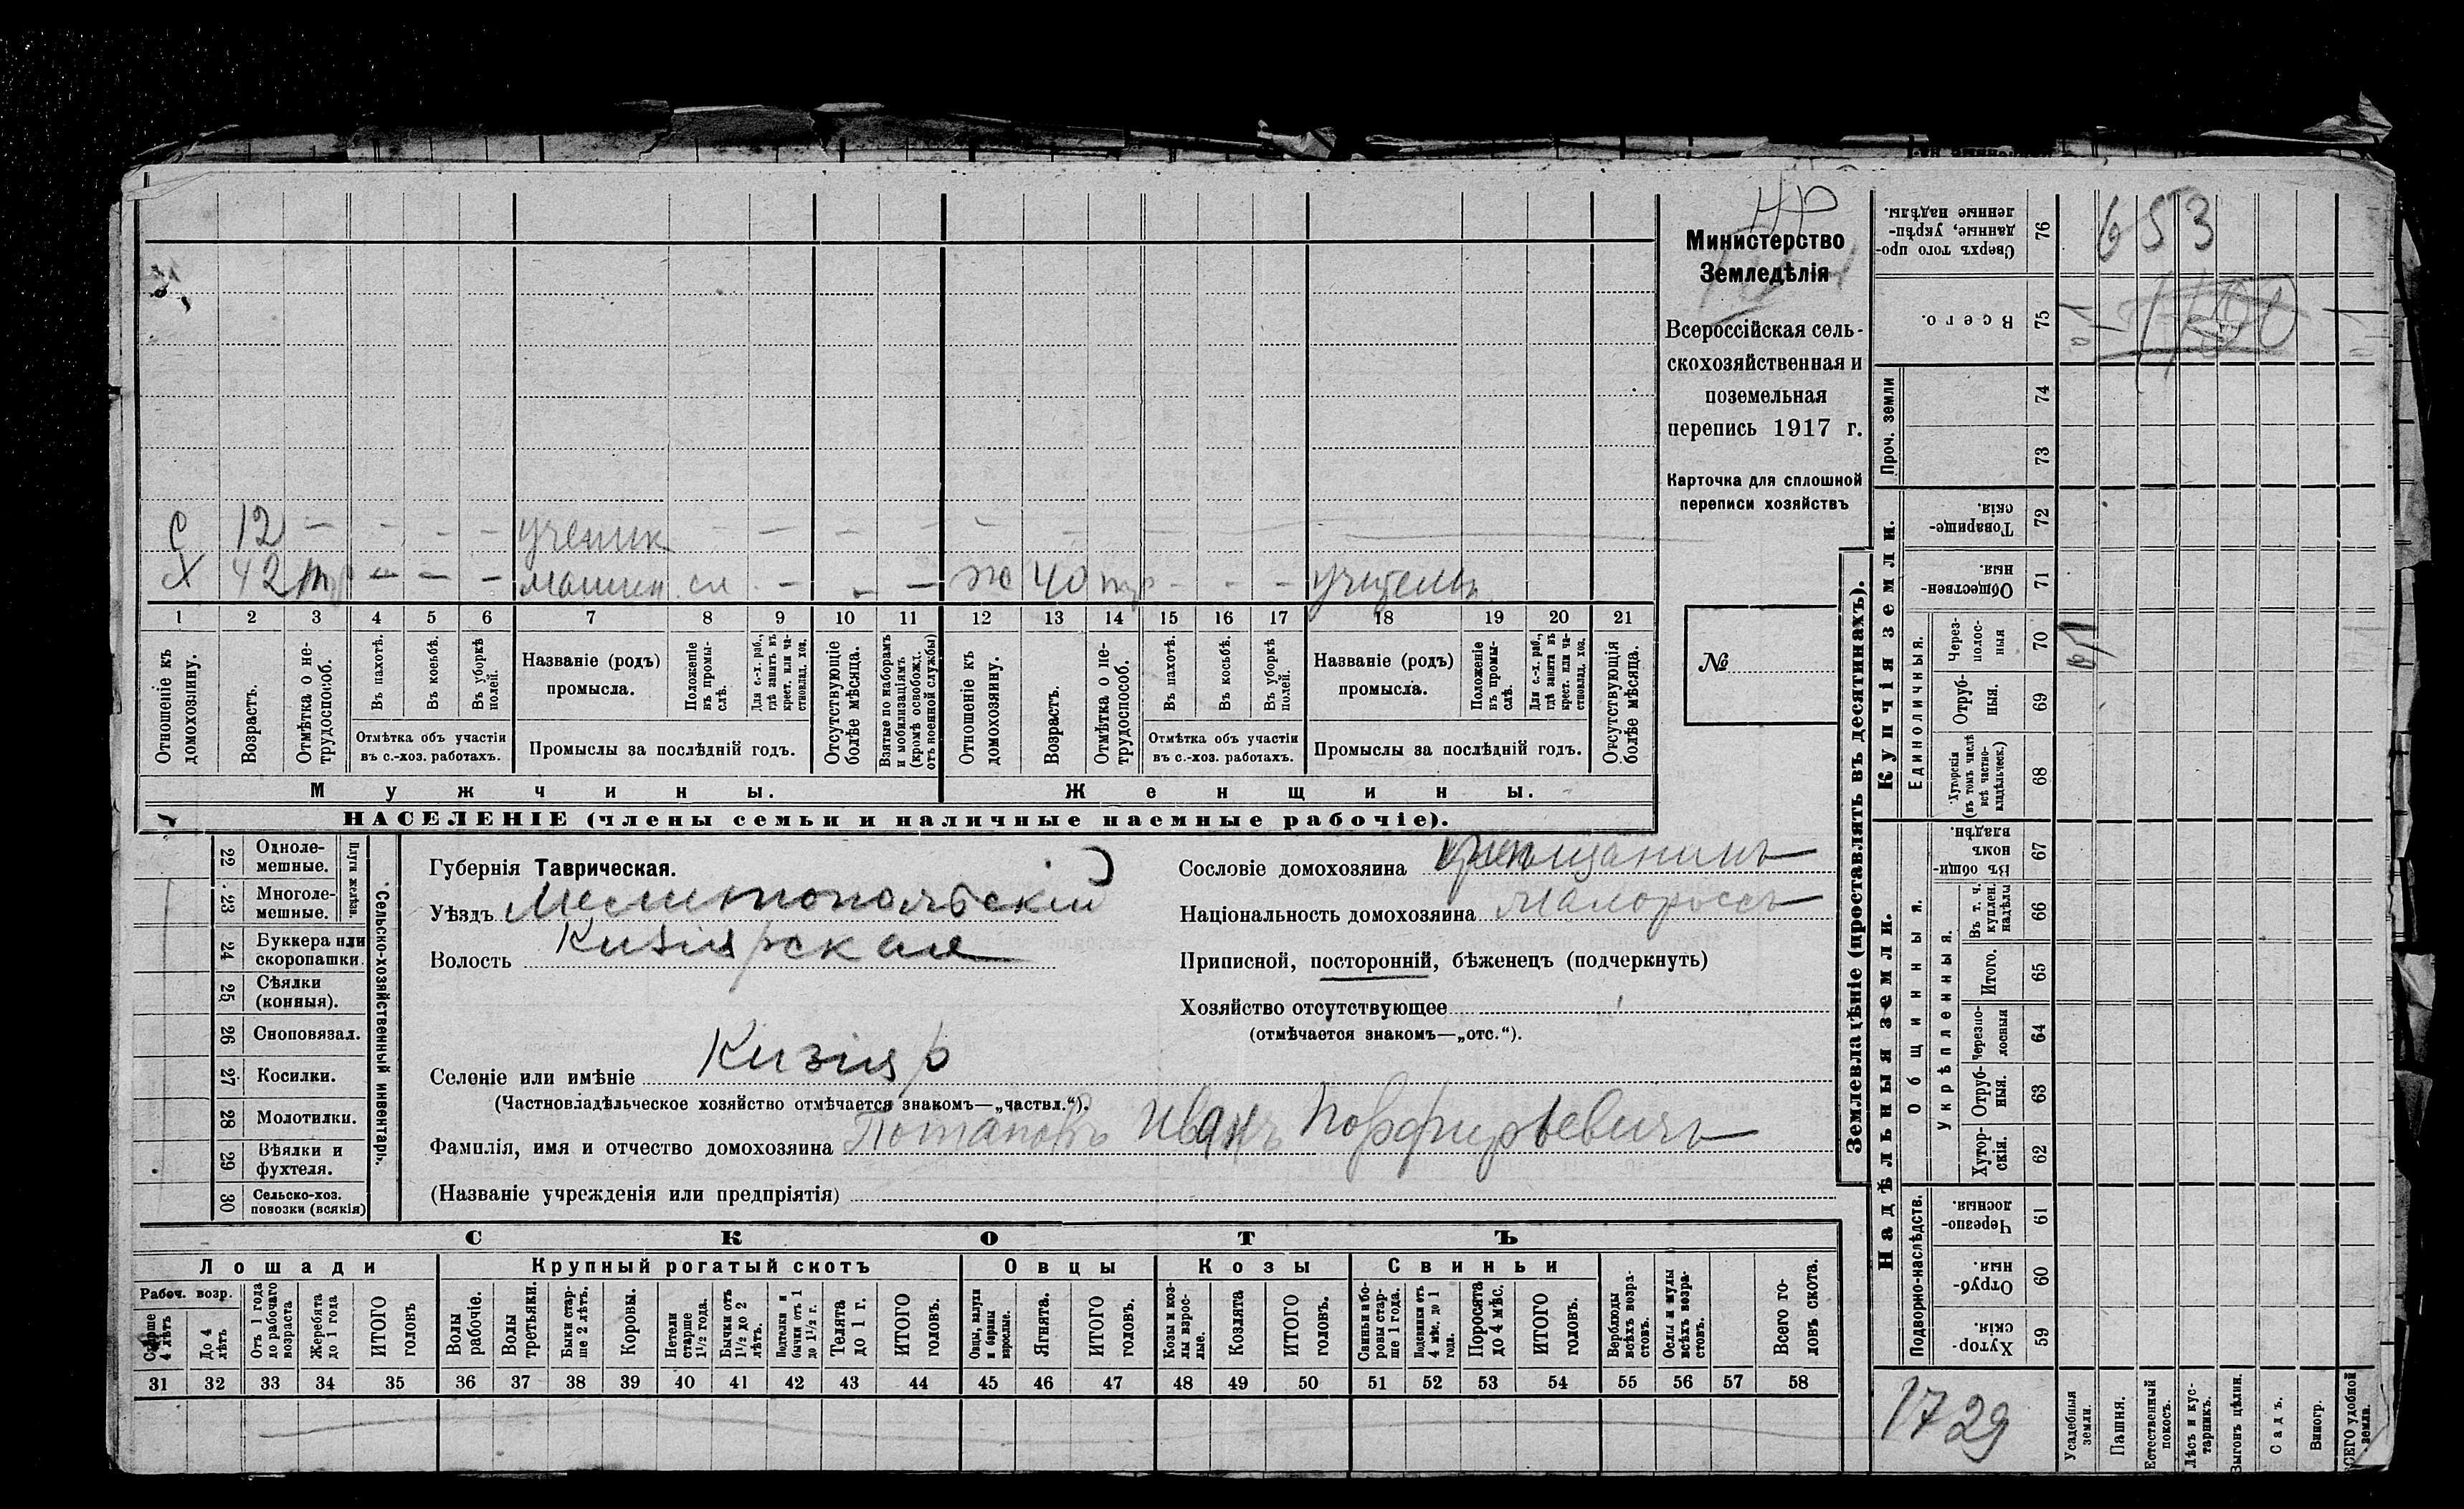 НР
Министерство
Земледѣлія
Всероссійская сель-
скохозяйственная и
поземельная
перепись 1917 г.
Карточка для сплошной
переписи хозяйствъ
№
С 12 — — — — ученик — — — — — —
Х 42 тр — — — машин. сл. — — — жо 40 тр — — — учитель
1 2 3 4 5 6 7 8 9 10 11 12 13 14 15 16 17 18 19 20 21
Отношеніе къ домохозяину.
Возрастъ.
Отмѣтка о не-трудоспособ.
Въ пахотѣ.
Въ косьбѣ.
Въ уборкѣ полей.
Отмѣтка объ участіи въ с.-хоз. работахъ.
Названіе (родъ) промысла.
Положеніе въ промы-слѣ.
Для с.-х. раб., гдѣ занятъ въ крест. или ча-стновлад. хоз.
Промыслы за послѣдній годъ.
Отсутствующіе болѣе мѣсяца.
Взятые по наборамъ и мобилизаціямъ (кромѣ освобожд. отъ военной службы)
Отношеніе къ домохозяину.
Возрастъ.
Отмѣтка о не-трудоспособ.
Въ пахотѣ.
Въ косьбѣ.
Въ уборкѣ полей.
Отмѣтка объ участіи въ с.-хоз. работахъ.
Названіе (родъ) промысла.
Положеніе въ промы-слѣ.
Для с.-х. раб., гдѣ занята въ крест. или ча-стновлад. хоз.
Промыслы за послѣдній годъ.
Отсутствующія болѣе мѣсяца.
Мужчины.
Женщины.
НАСЕЛЕНІЕ (члены семьи и наличные наемные рабочіе).
Сельско-хозяйственный инвентарь.
Плуги желѣзн.
22 Одноле-мешные.
23 Многоле-мешные.
24 Буккера или скоропашки.
25 Сѣялки (конныя).
26 Сноповязал.
27 Косилки.
28 Молотилки.
29 Вѣялки и фухтеля.
30 Сельско-хоз. повозки (всякія)
Губернія Таврическая.
Уѣздъ Мелитопольскій
Волость Кизіярская
Селеніе или имѣніе Кизіяр
(Частновладѣльческое хозяйство отмѣчается знакомъ—„частвл.“).
Фамилія, имя и отчество домохозяина Потаповъ Иванъ Порфирьевичъ
(Названіе учрежденія или предпріятія)
Сословіе домохозяина мѣщанинъ
Національность домохозяина Малороссъ
Приписной, посторонній, бѣженецъ (подчеркнуть)
Хозяйство отсутствующее
(отмѣчается знакомъ—„отс.“).
СКОТЪ
Лошади
Крупный рогатый скотъ
Овцы
Козы
Свиньи
Рабоч. возр.
Старше 4 лѣтъ
До 4 лѣтъ
Отъ 1 года до рабочаго возраста
Жеребята до 1 года
ИТОГО головъ
Волы рабочіе.
Волы третьяки.
Быки стар-ше 2 лѣтъ.
Коровы.
Нетели старше 1½ года.
Бычки отъ 1½ до 2 лѣтъ.
Подтелки и бычки отъ 1 до 1½ г.
Телята до 1 г.
ИТОГО головъ.
Овцы, валухи и бараны взрослые.
Ягнята.
ИТОГО головъ.
Козы и коз-лы взрос-лые.
Козлята
ИТОГО головъ.
Свиньи и бо-ровы стар-ше 1 года.
Подсвинки отъ 4 мѣс. до 1 года.
Поросята до 4 мѣс.
ИТОГО головъ.
Верблюды всѣхъ возра-стовъ.
Ослы и мулы всѣхъ возра-стовъ.
Всего го-ловъ скота.
31 32 33 34 35 36 37 38 39 40 41 42 43 44 45 46 47 48 49 50 51 52 53 54 55 56 57 58
Землевладѣніе (проставлять въ десятинахъ).
Купчія земли.
Надѣльныя земли.
Проч. земли
Единоличныя.
Общинныя.
Укрѣпленныя.
Подворно-наслѣдств.
Сверхъ того про-данные, укрѣп-ленные надѣлы. 76
653
Всего. 75
74
73
Товарище-скія. 72
Обществен-ныя. 71
Через-полос-ныя 70
Отруб-ныя. 69
Хуторскія (въ томъ числѣ всѣ частно-владѣльческ.) 68
Въ общин-номъ владѣн. 67
Въ т. ч. куплен. надѣлы 66
Итого. 65
Черезпо-лосныя 64
Отруб-ныя. 63
Хутор-скія. 62
Черезпо-лосныя 61
Отруб-ныя. 60
Хутор-скія. 59
1729
Усадебныя земли.
Пашня.
Естественный покосъ.
Лѣсъ и кус-тарникъ.
Выгонъ цѣлин.
Садъ.
Виногр.
ВСЕГО удобной земли.